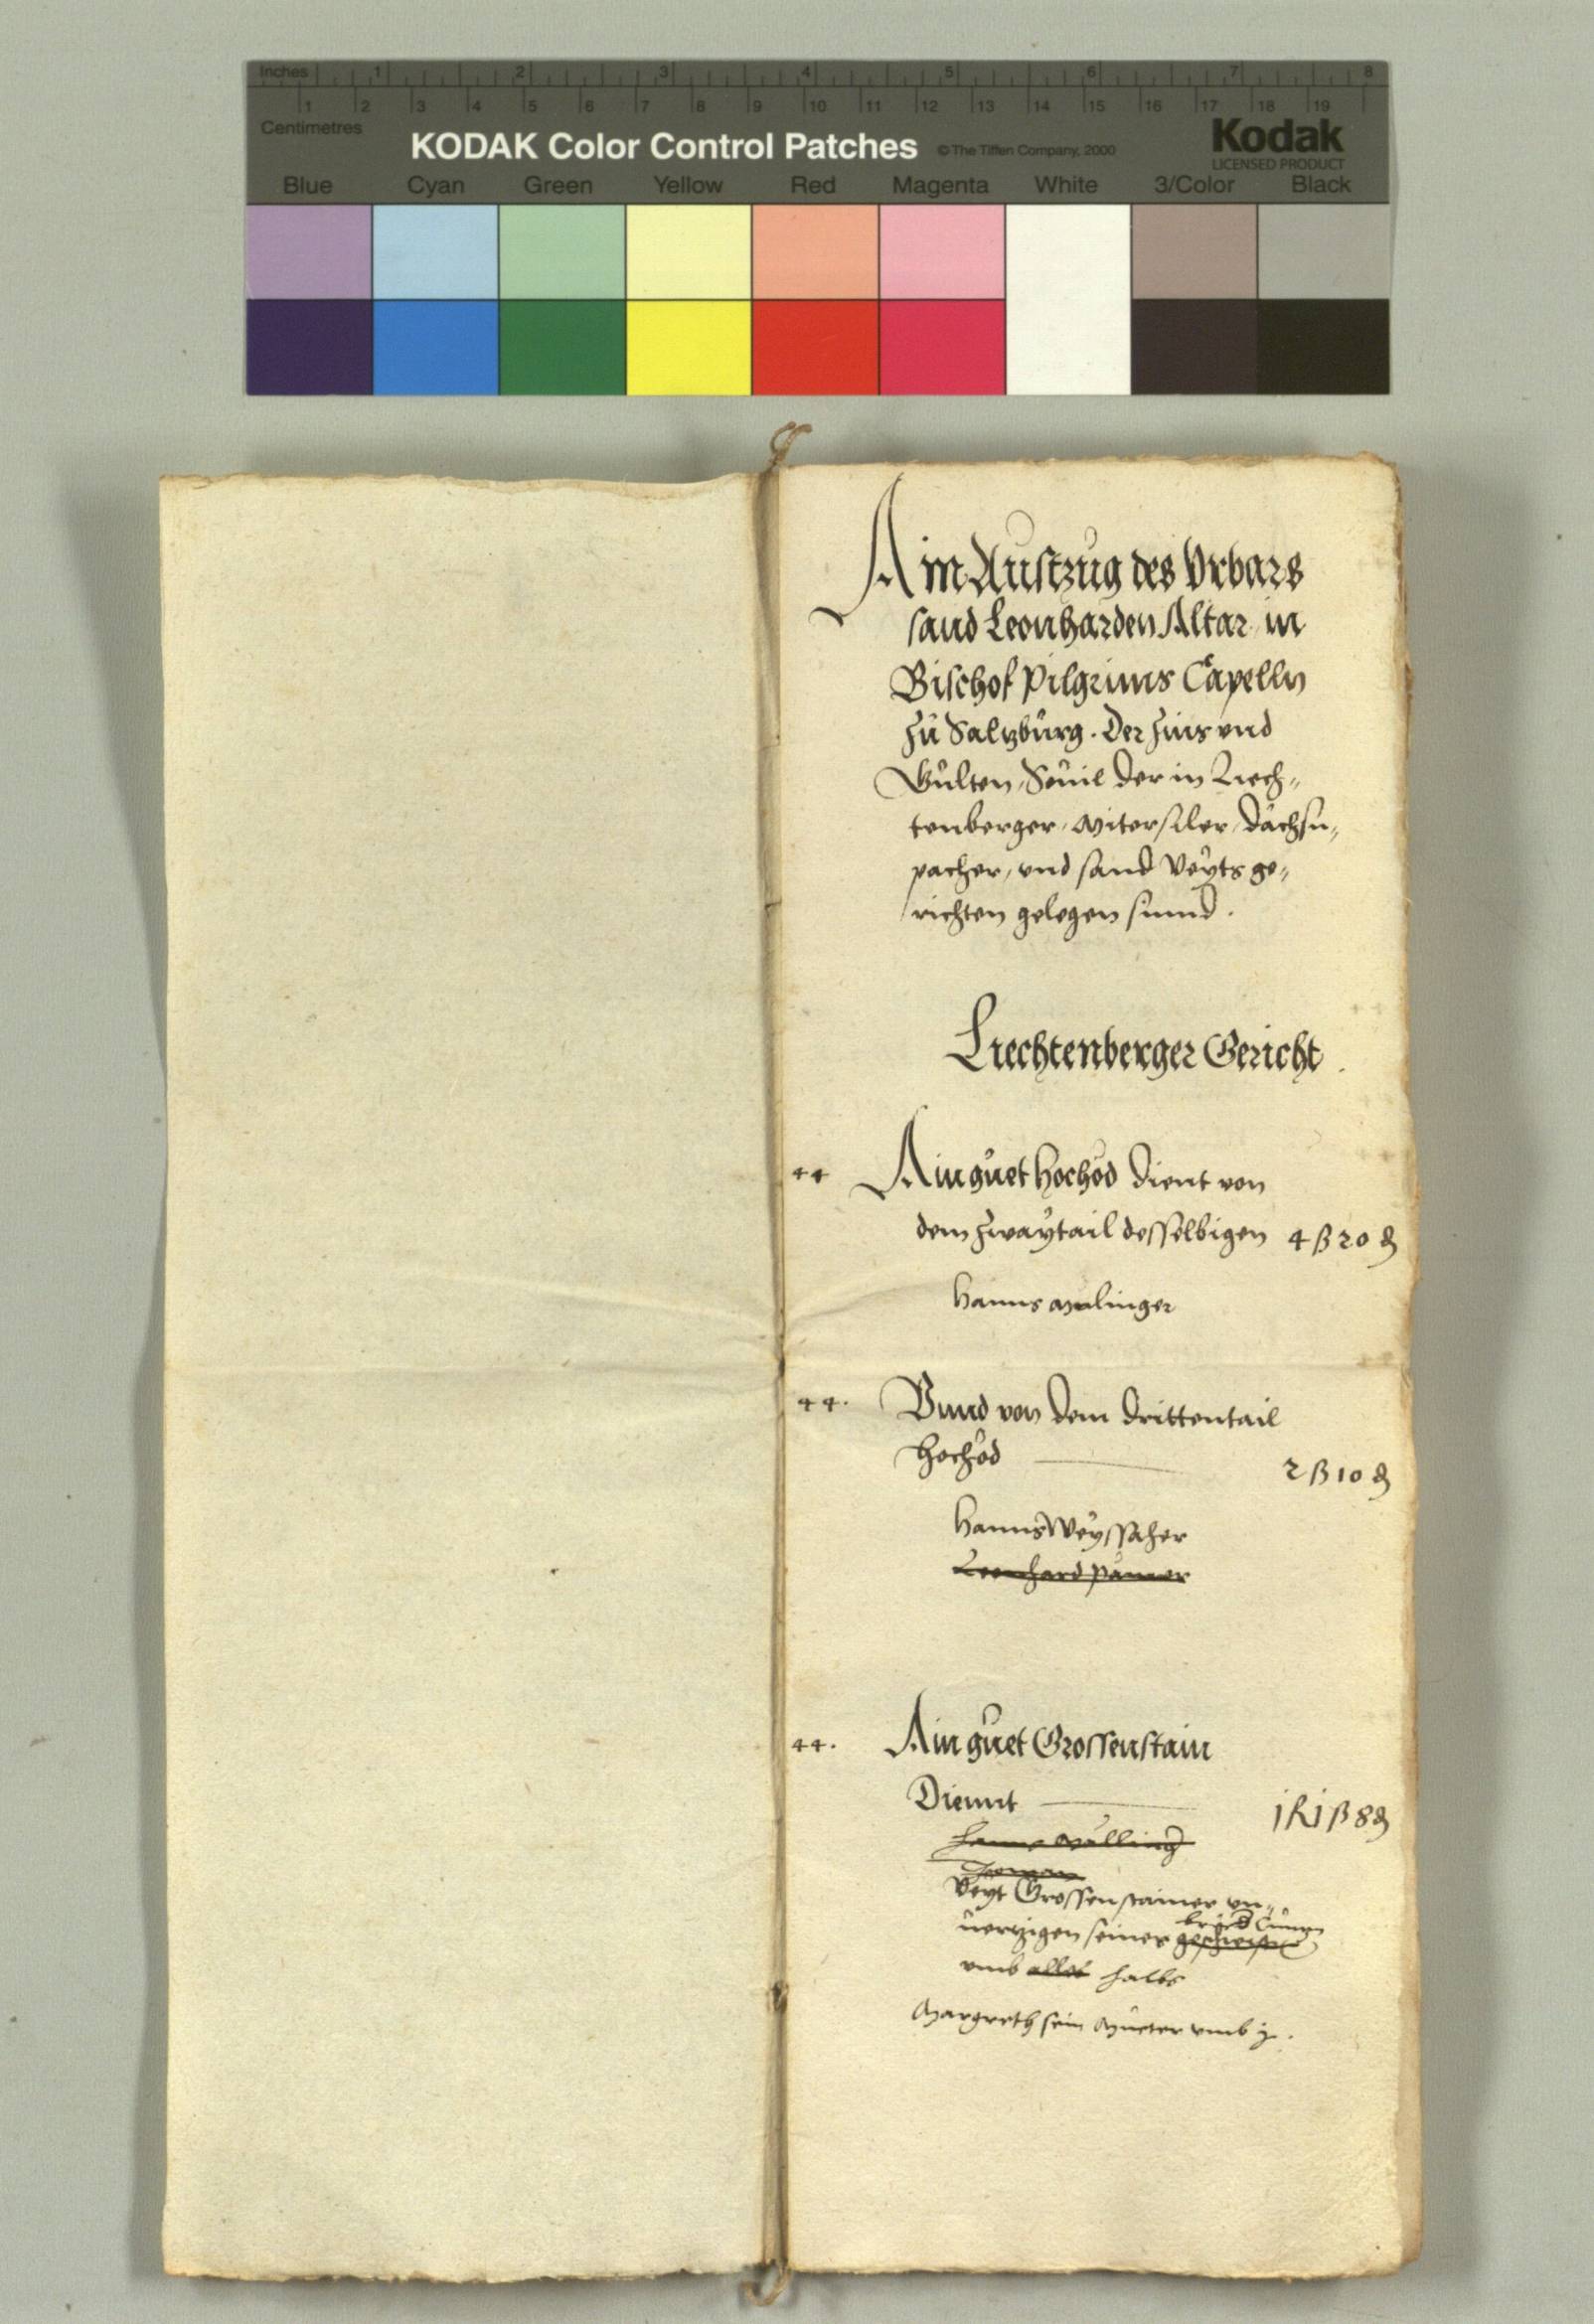 Inches 1 2 3 4 5 6 7 8
1 2 3 4 5 6 7 8 9 10 11 12 13 14 15 16 17 18 19
Centimetres
KODAK Color Control Patches © The Tiffen Company, 2000 Kodak
LICENSED PRODUCT
Blue Cyan Green Yellow Red Magenta White 3/Color Black
Ain Auszzug des Vrbars
sand Leonharden Altar in
Bischof Pilgrims Capelln
zů Saltzburg. Der Zins vnd
Gůlten, Souil der in Liech„
tenberger, Mitersiler, Dächsn„
pacher, vnd sand Veyts ge„
richten gelegen sinnd.
Liechtenberger Gericht.
44 Ain gůet Hochöd dient von
dem zwaytail desselbigen 4 ß 20 ₰
Hanns Malinger
44. Vnnd von dem drittentail
Hochöd 2 ß 10 ₰
Hanns Weyssaher
Leonhard
44. Ain gůet Grossenstain
Diennt j R j ß 8 ₰
Hanns
Veyt Grossenstainer vn„
uertzigen seiner
vmb halbs
Margreth sein Můeter vmb